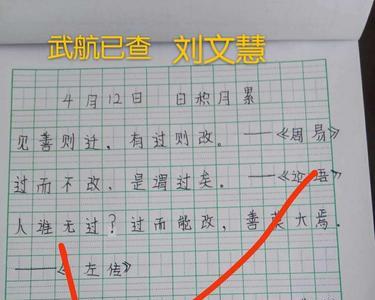 武航已查 刘文慧
4月12日 日积月累
见善则迁，有过则改。——《周易》
过而不改，是谓过矣。——《论语》
人谁无过？过而能改，善莫大焉。
——《左传》